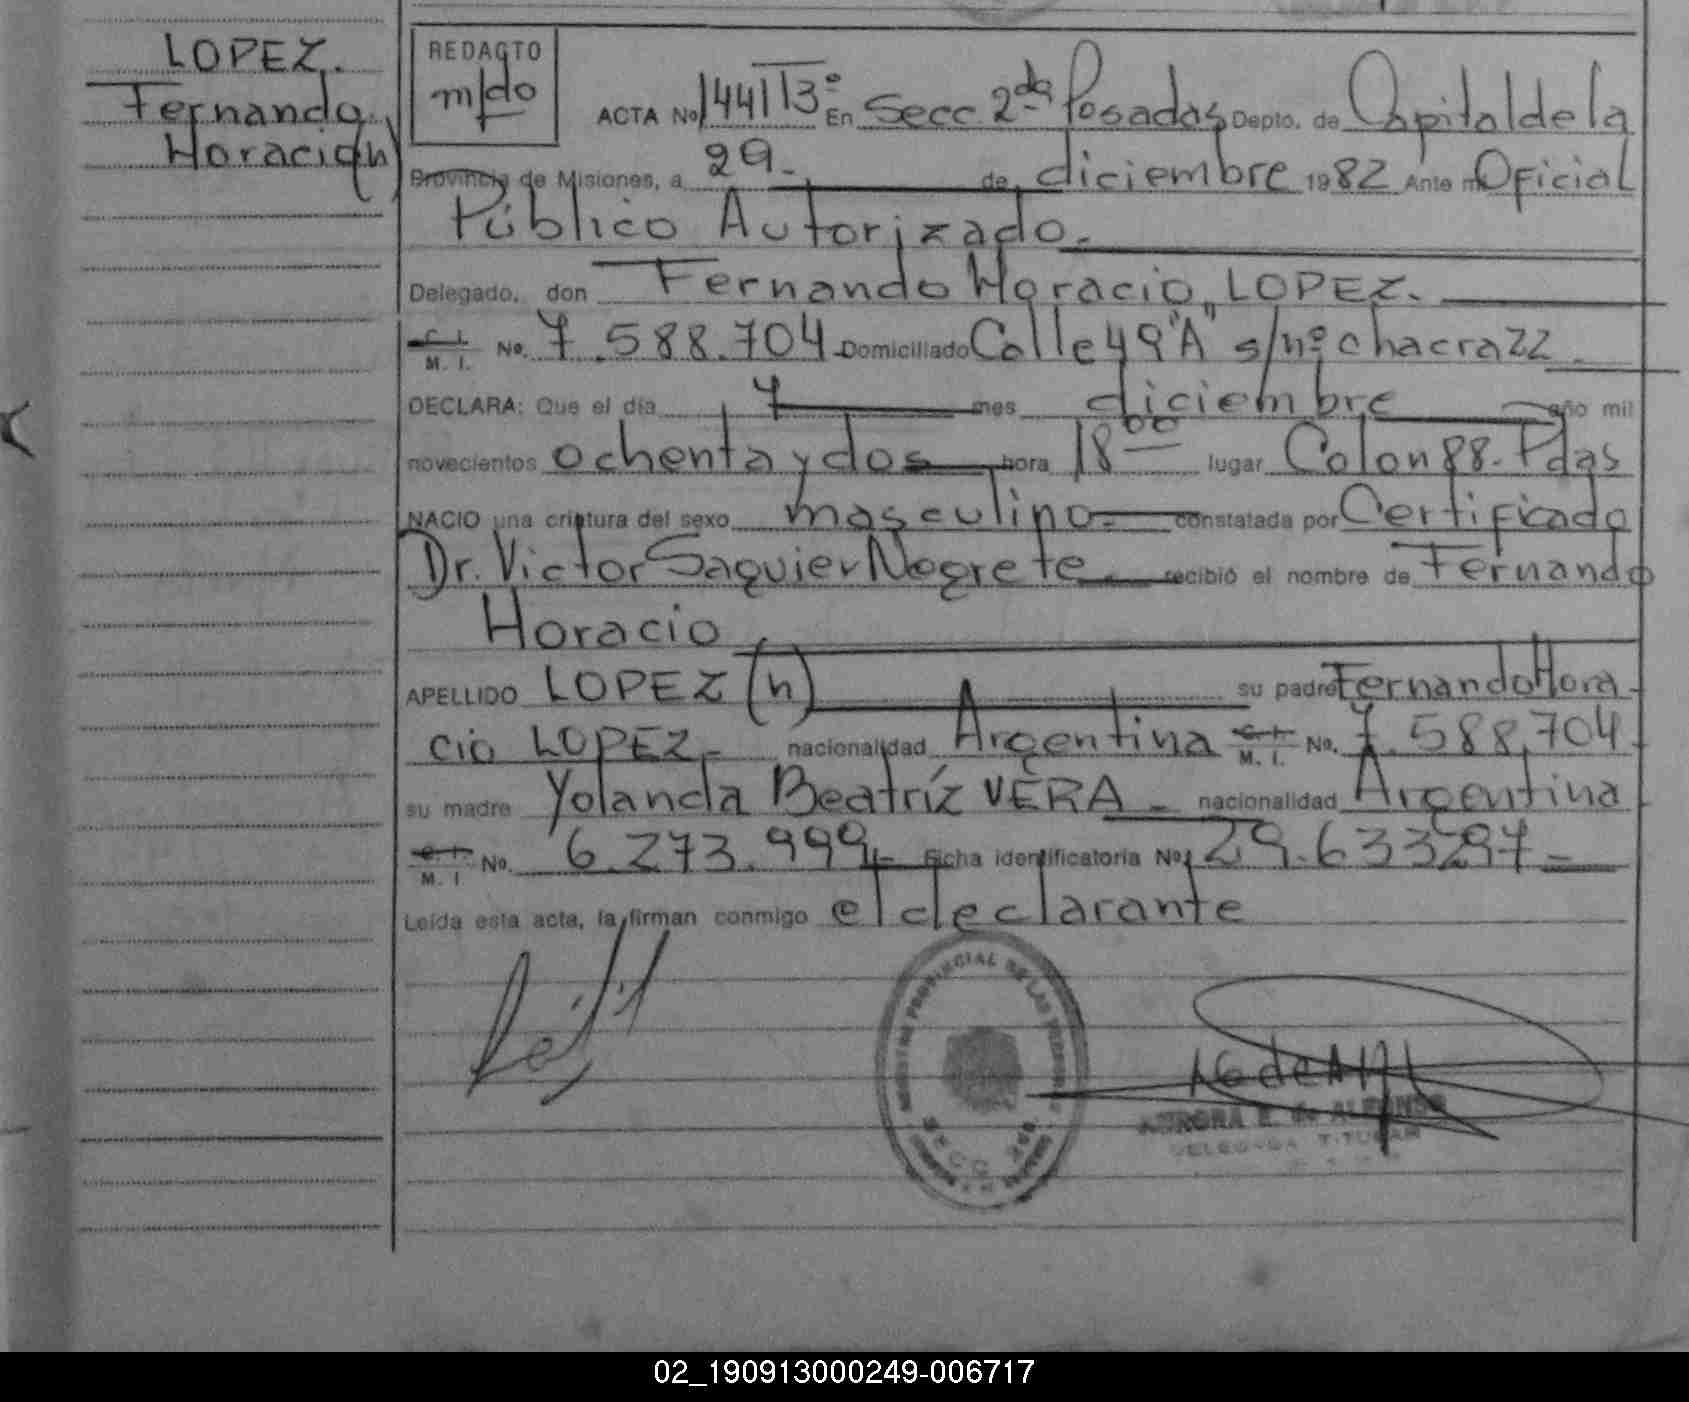 LOPEZ.
Fernando
Horacio(h)
REDACTO
m/do
ACTA No 144 T 13° En Secc 2da Posadas Depto. de Capital de la
Provincia de Misiones, a 29.- de diciembre 1982 Ante mi Oficial
Público Autorizado.-
Delegado, don Fernando Horacio, LOPEZ.
C. I.
M. I. No. 7.588.704 Domiciliado Calle 49 "A" s/nº chacra 22
DECLARA: Que el día 7 mes diciembre año mil
novecientos ochenta y dos hora 18 00 lugar Colon 88. Pdas
NACIO una criatura del sexo masculino.- constatada por Certificado
Dr. Victor Saquier Negrete recibió el nombre de Fernando
Horacio
APELLIDO LOPEZ (h) su padre Fernando Hora
cio LOPEZ.- nacionalidad Argentina C. I.
M. I. No. 7.588.704
su madre Yolanda Beatríz VERA.- nacionalidad Argentina
C. I.
M. I No. 6.273.999.- Ficha identificatoria No. 29.633297-
Leída esta acta, la firman conmigo el declarante
REGISTRO PROVINCIAL DE LAS PERSONAS
SECC 2da.
AURORA E. de ALFONSO
DELEGADA TITULAR
02_190913000249-006717